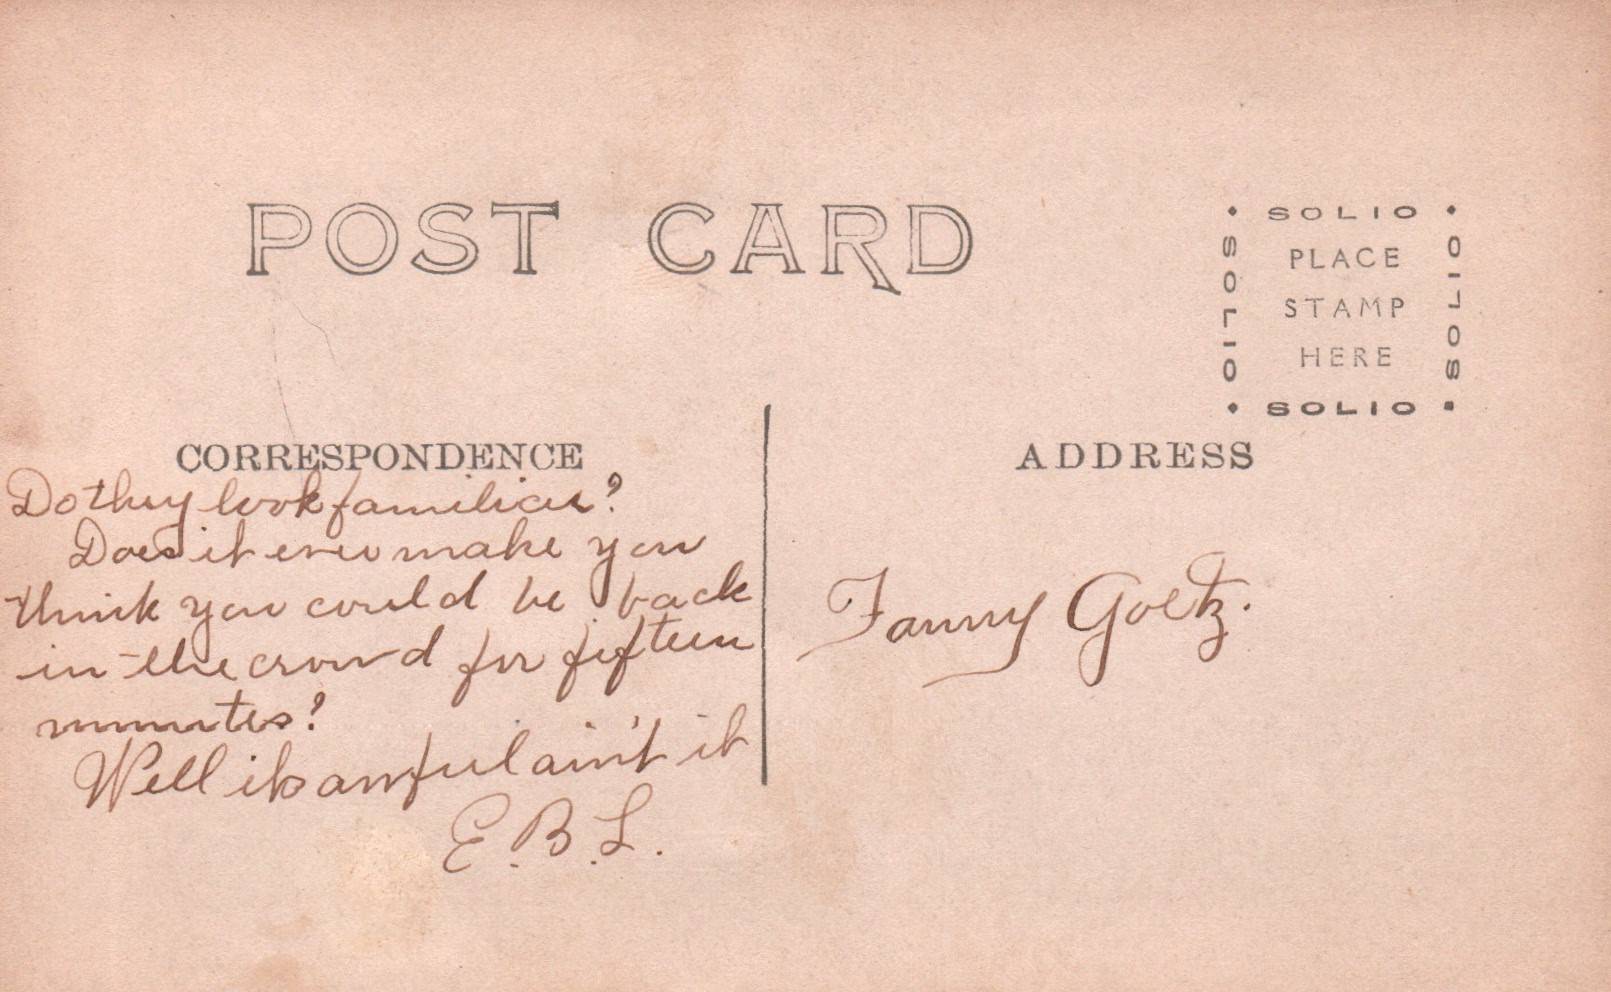 POST CARD
SOLIO
SOLIO
PLACE
STAMP
HERE
SOLIO
SOLIO
CORRESPONDENCE
ADDRESS
Do they look familiar?
Does it ever make you
think you could be back
in the crowd for fifteen
minutes?
Well its awful ain't it
E.B.L.
Fanny Goetz.